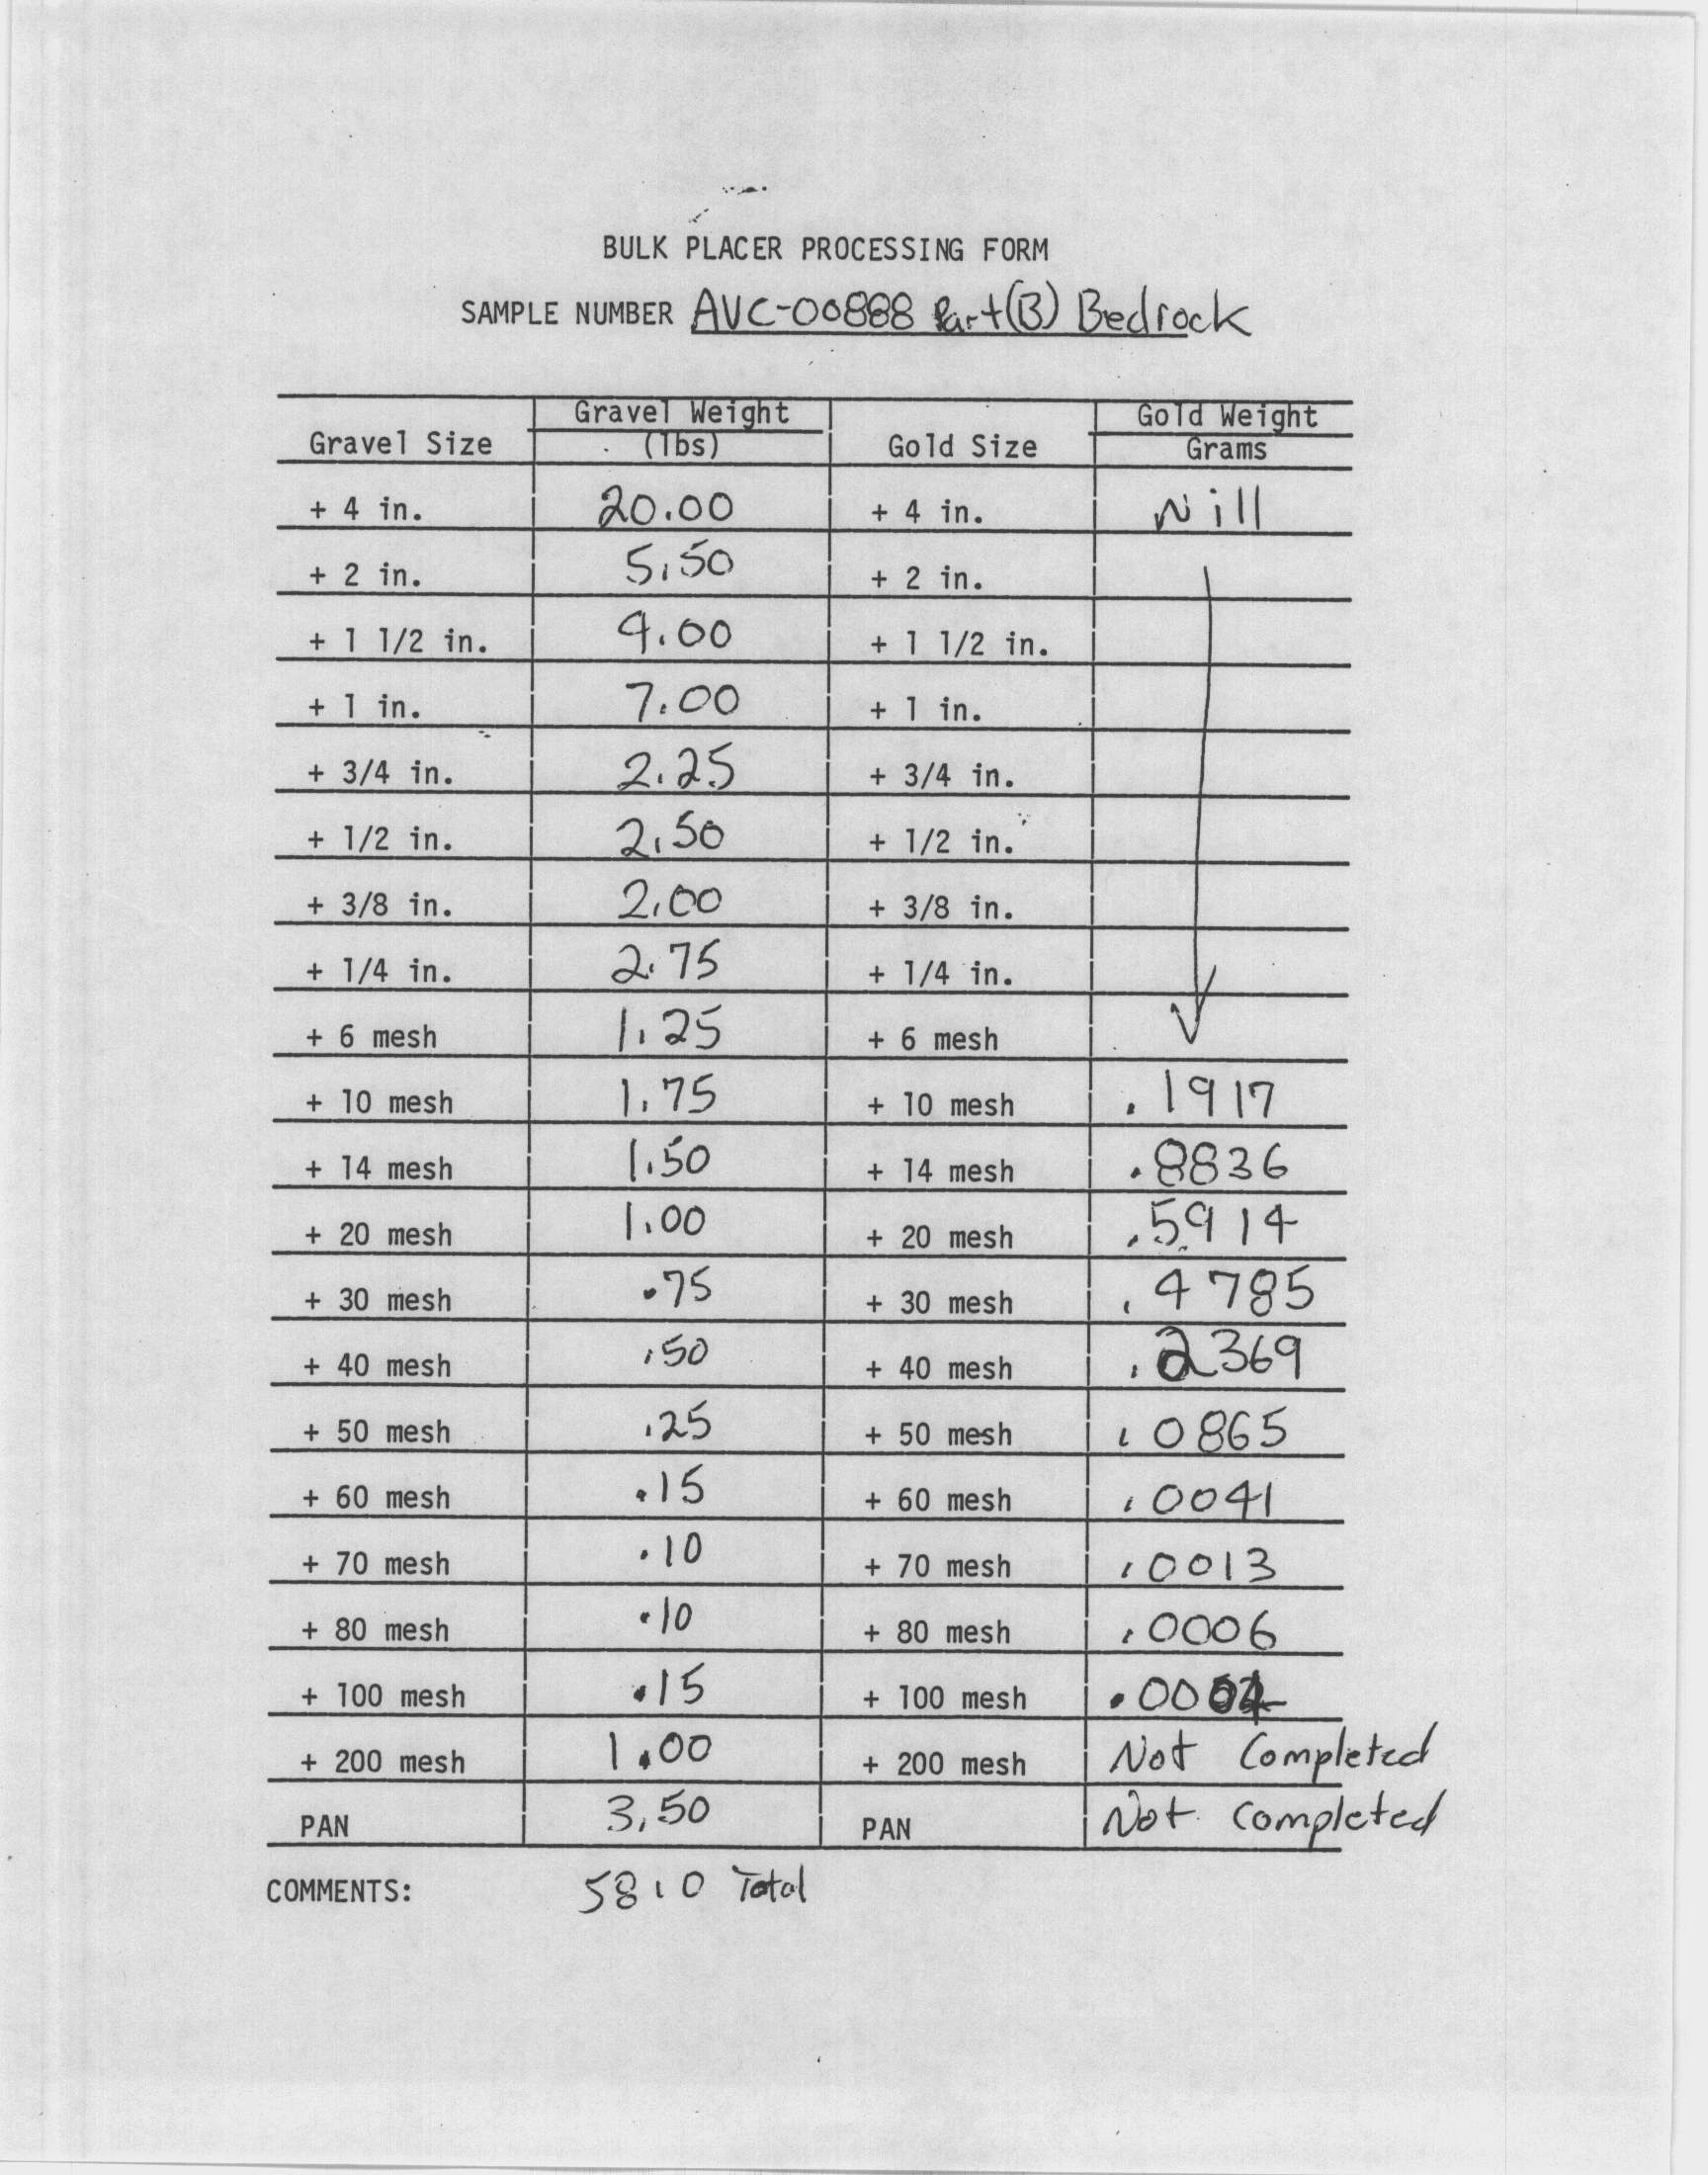 BULK PLACER PROCESSING FORM
SAMPLE NUMBER AVC-00888 Part (B) Bedrock
Gravel Size Gravel Weight (lbs) Gold Size Gold Weight Grams
+ 4 in. 20.00 + 4 in. Nill
+ 2 in. 5.50 + 2 in.
+ 1 1/2 in. 4.00 + 1 1/2 in.
+ 1 in. 7.00 + 1 in.
+ 3/4 in. 2.25 + 3/4 in.
+ 1/2 in. 2.50 + 1/2 in.
+ 3/8 in. 2.00 + 3/8 in.
+ 1/4 in. 2.75 + 1/4 in.
+ 6 mesh 1.25 + 6 mesh
+ 10 mesh 1.75 + 10 mesh .1917
+ 14 mesh 1.50 + 14 mesh .8836
+ 20 mesh 1.00 + 20 mesh .5914
+ 30 mesh .75 + 30 mesh .4785
+ 40 mesh .50 + 40 mesh .2369
+ 50 mesh .25 + 50 mesh .0865
+ 60 mesh .15 + 60 mesh .0041
+ 70 mesh .10 + 70 mesh .0013
+ 80 mesh .10 + 80 mesh .0006
+ 100 mesh .15 + 100 mesh
+ 200 mesh 1.00 + 200 mesh Not Completed
PAN 3.50 PAN Not Completed
COMMENTS: 58.0 Total